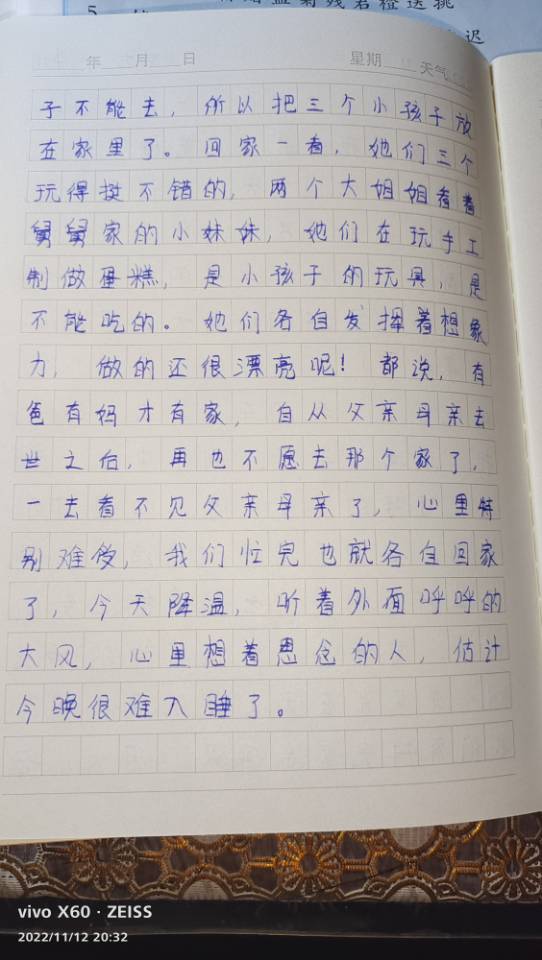 年 月 日 星期 天气
子不能去，所以把三个小孩子放
在家里了。回家一看，她们三个
玩得挺不错的，两个大姐姐看着
舅舅家的小妹妹，她们在玩手工
制做蛋糕，是小孩子的玩具，是
不能吃的。她们各自发挥着想象
力，做的还很漂亮呢！都说，有
爸有妈才有家，自从父亲母亲去
世之后，再也不愿去那个家了，
一去看不见父亲母亲了，心里特
别难受，我们忙完也就各自回家
了，今天降温，听着外面呼呼的
大风，心里想着思念的人，估计
今晚很难入睡了。
vivo X60 · ZEISS
2022/11/12 20:32